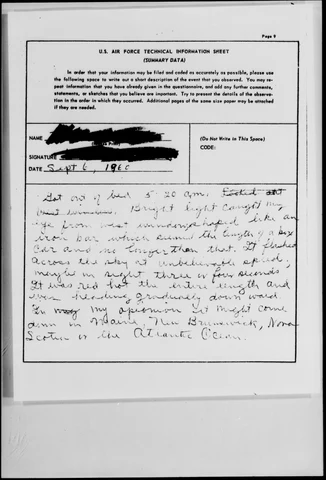 Page 8
U.S. AIR FORCE TECHNICAL INFORMATION SHEET
(SUMMARY DATA)
In order that your information may be filed and coded as accurately as possible, please use
the following space to write out a short description of the event that you observed. You may re-
peat information that you have already given in the questionnaire, and add any further comments,
statements, or sketches that you believe are important. Try to present the details of the observa-
tion in the order in which they occurred. Additional pages of the same size paper may be attached
if they are needed.
NAME
(Do Not Write in This Space)
CODE:
SIGNATURE
DATE Sept 6, 1960
Got out of bed 5-20 am.
Bright light caught my
eye from west window shaped like an
iron bar which seemed the length of a box
car and no longer than that. It flashed
across the sky at unbelievable speed,
maybe in sight three or four seconds
It was red hot the entire length and
was heading gradually down ward.
In my opionion it might come
down in Maine, New Brunswick, Nova
Scotia or the Atlantic Ocean.